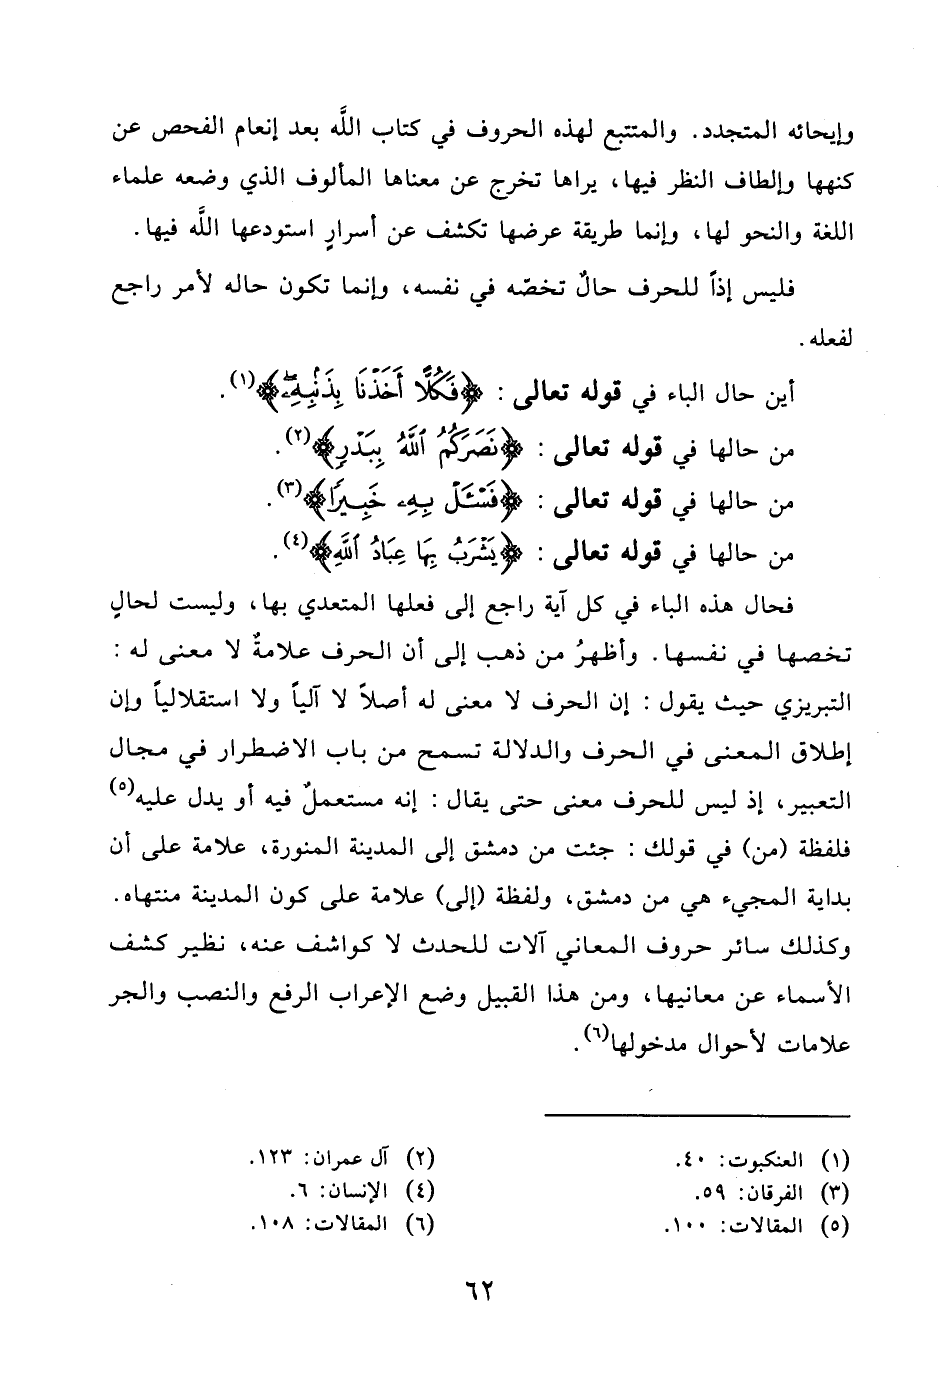 وإيحائه المتجدد. والمتتبع لهذه الحروف في كتاب اللَّه بعد إنعام الفحص عن
كنهها وإلطاف النظر فيها، يراها تخرج عن معناها المألوف الذي وضعه علماء
اللغة والنحو لها، وإنما طريقة عرضها تكشف عن أسرارٍ استودعها اللَّه فيها.
فليس إذاً للحرف حالٌ تخصّه في نفسه، وإنما تكون حاله لأمر راجع
لفعله.
أين حال الباء في قوله تعالى : ﴿فَكُلًّا أَخَذْنَا بِذَنۢبِهِۦۖ﴾(١).
من حالها في قوله تعالى : ﴿نَصَرَكُمُ ٱللَّهُ بِبَدْرٍ﴾(٢).
من حالها في قوله تعالى : ﴿فَسْـَٔلْ بِهِۦ خَبِيرًا﴾(٣).
من حالها في قوله تعالى : ﴿يَشْرَبُ بِهَا عِبَادُ ٱللَّهِ﴾(٤).
فحال هذه الباء في كل آية راجع إلى فعلها المتعدي بها، وليست لحالٍ
تخصها في نفسها. وأظهرُ من ذهب إلى أن الحرف علامةٌ لا معنى له :
التبريزي حيث يقول : إن الحرف لا معنى له أصلاً لا آلياً ولا استقلالياً وإن
إطلاق المعنى في الحرف والدلالة تسمح من باب الاضطرار في مجال
التعبير، إذ ليس للحرف معنى حتى يقال : إنه مستعملٌ فيه أو يدل عليه(٥)
فلفظة (من) في قولك : جئت من دمشق إلى المدينة المنورة، علامة على أن
بداية المجيء هي من دمشق، ولفظة (إلى) علامة على كون المدينة منتهاه.
وكذلك سائر حروف المعاني آلات للحدث لا كواشف عنه، نظير كشف
الأسماء عن معانيها، ومن هذا القبيل وضع الإعراب الرفع والنصب والجر
علامات لأحوال مدخولها(٦).
(١) العنكبوت: ٤٠.
(٢) آل عمران: ١٢٣.
(٣) الفرقان: ٥٩.
(٤) الإنسان: ٦.
(٥) المقالات: ١٠٠.
(٦) المقالات: ١٠٨.
٦٢